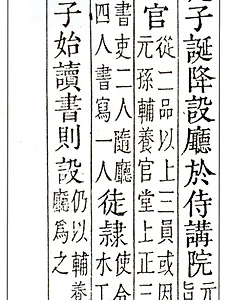 子誕降設廳於侍講院
官
從二品以上三員或因
元孫輔養官堂上正三
書吏二人隨廳
四人書寫一人
徒隷
使令
水工
子始讀書則設
仍以輔養
廳爲之